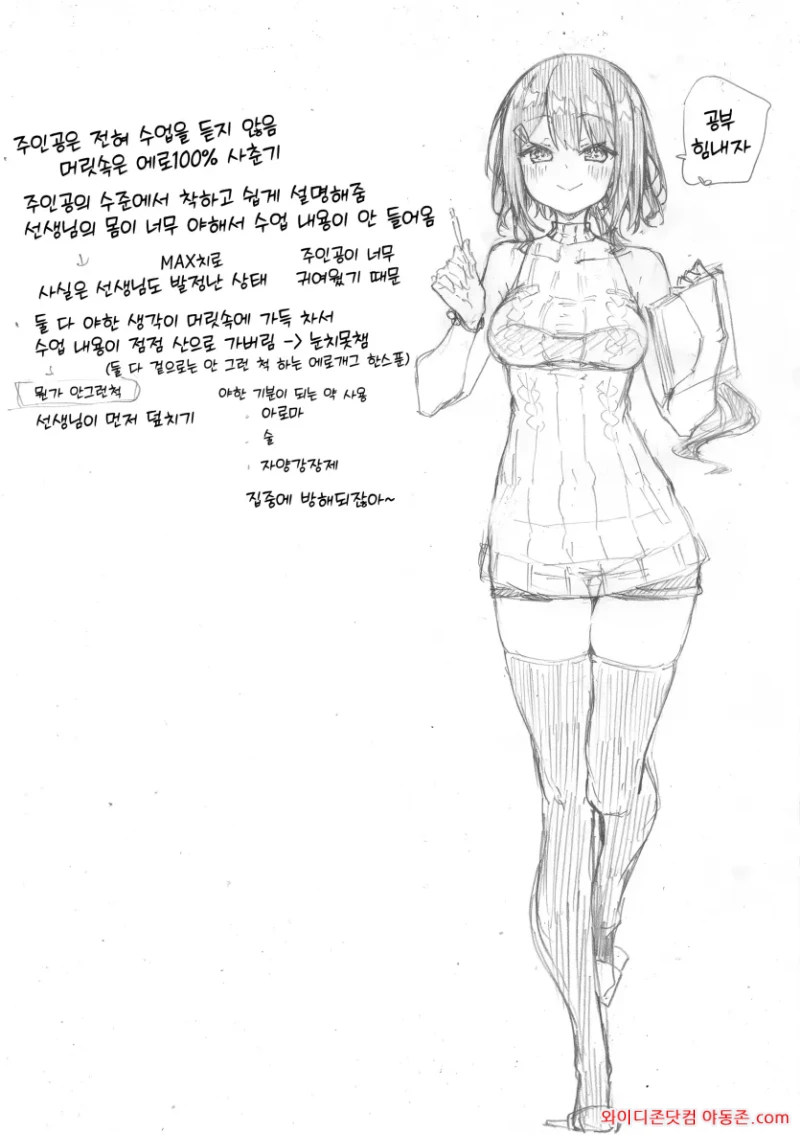 공부
힘내자
주인공은 전혀 수업을 듣지 않음
머릿속은 에로100% 사춘기
주인공의 수준에서 착하고 쉽게 설명해줌
선생님의 몸이 너무 야해서 수업 내용이 안 들어옴
MAX치로
주인공이 너무
사실은 선생님도 발정난 상태
귀여웠기 때문
둘 다 야한 생각이 머릿속에 가득 차서
수업 내용이 점점 산으로 가버림 -> 눈치못챔
(둘 다 겉으로는 안 그런 척 하는 에로개그 한스푼)
뭔가 안그런척
야한 기분이 되는 약 사용
선생님이 먼저 덮치기
아로마
술
자양강장제
집중에 방해되잖아~
와이디존닷컴 야동존.com